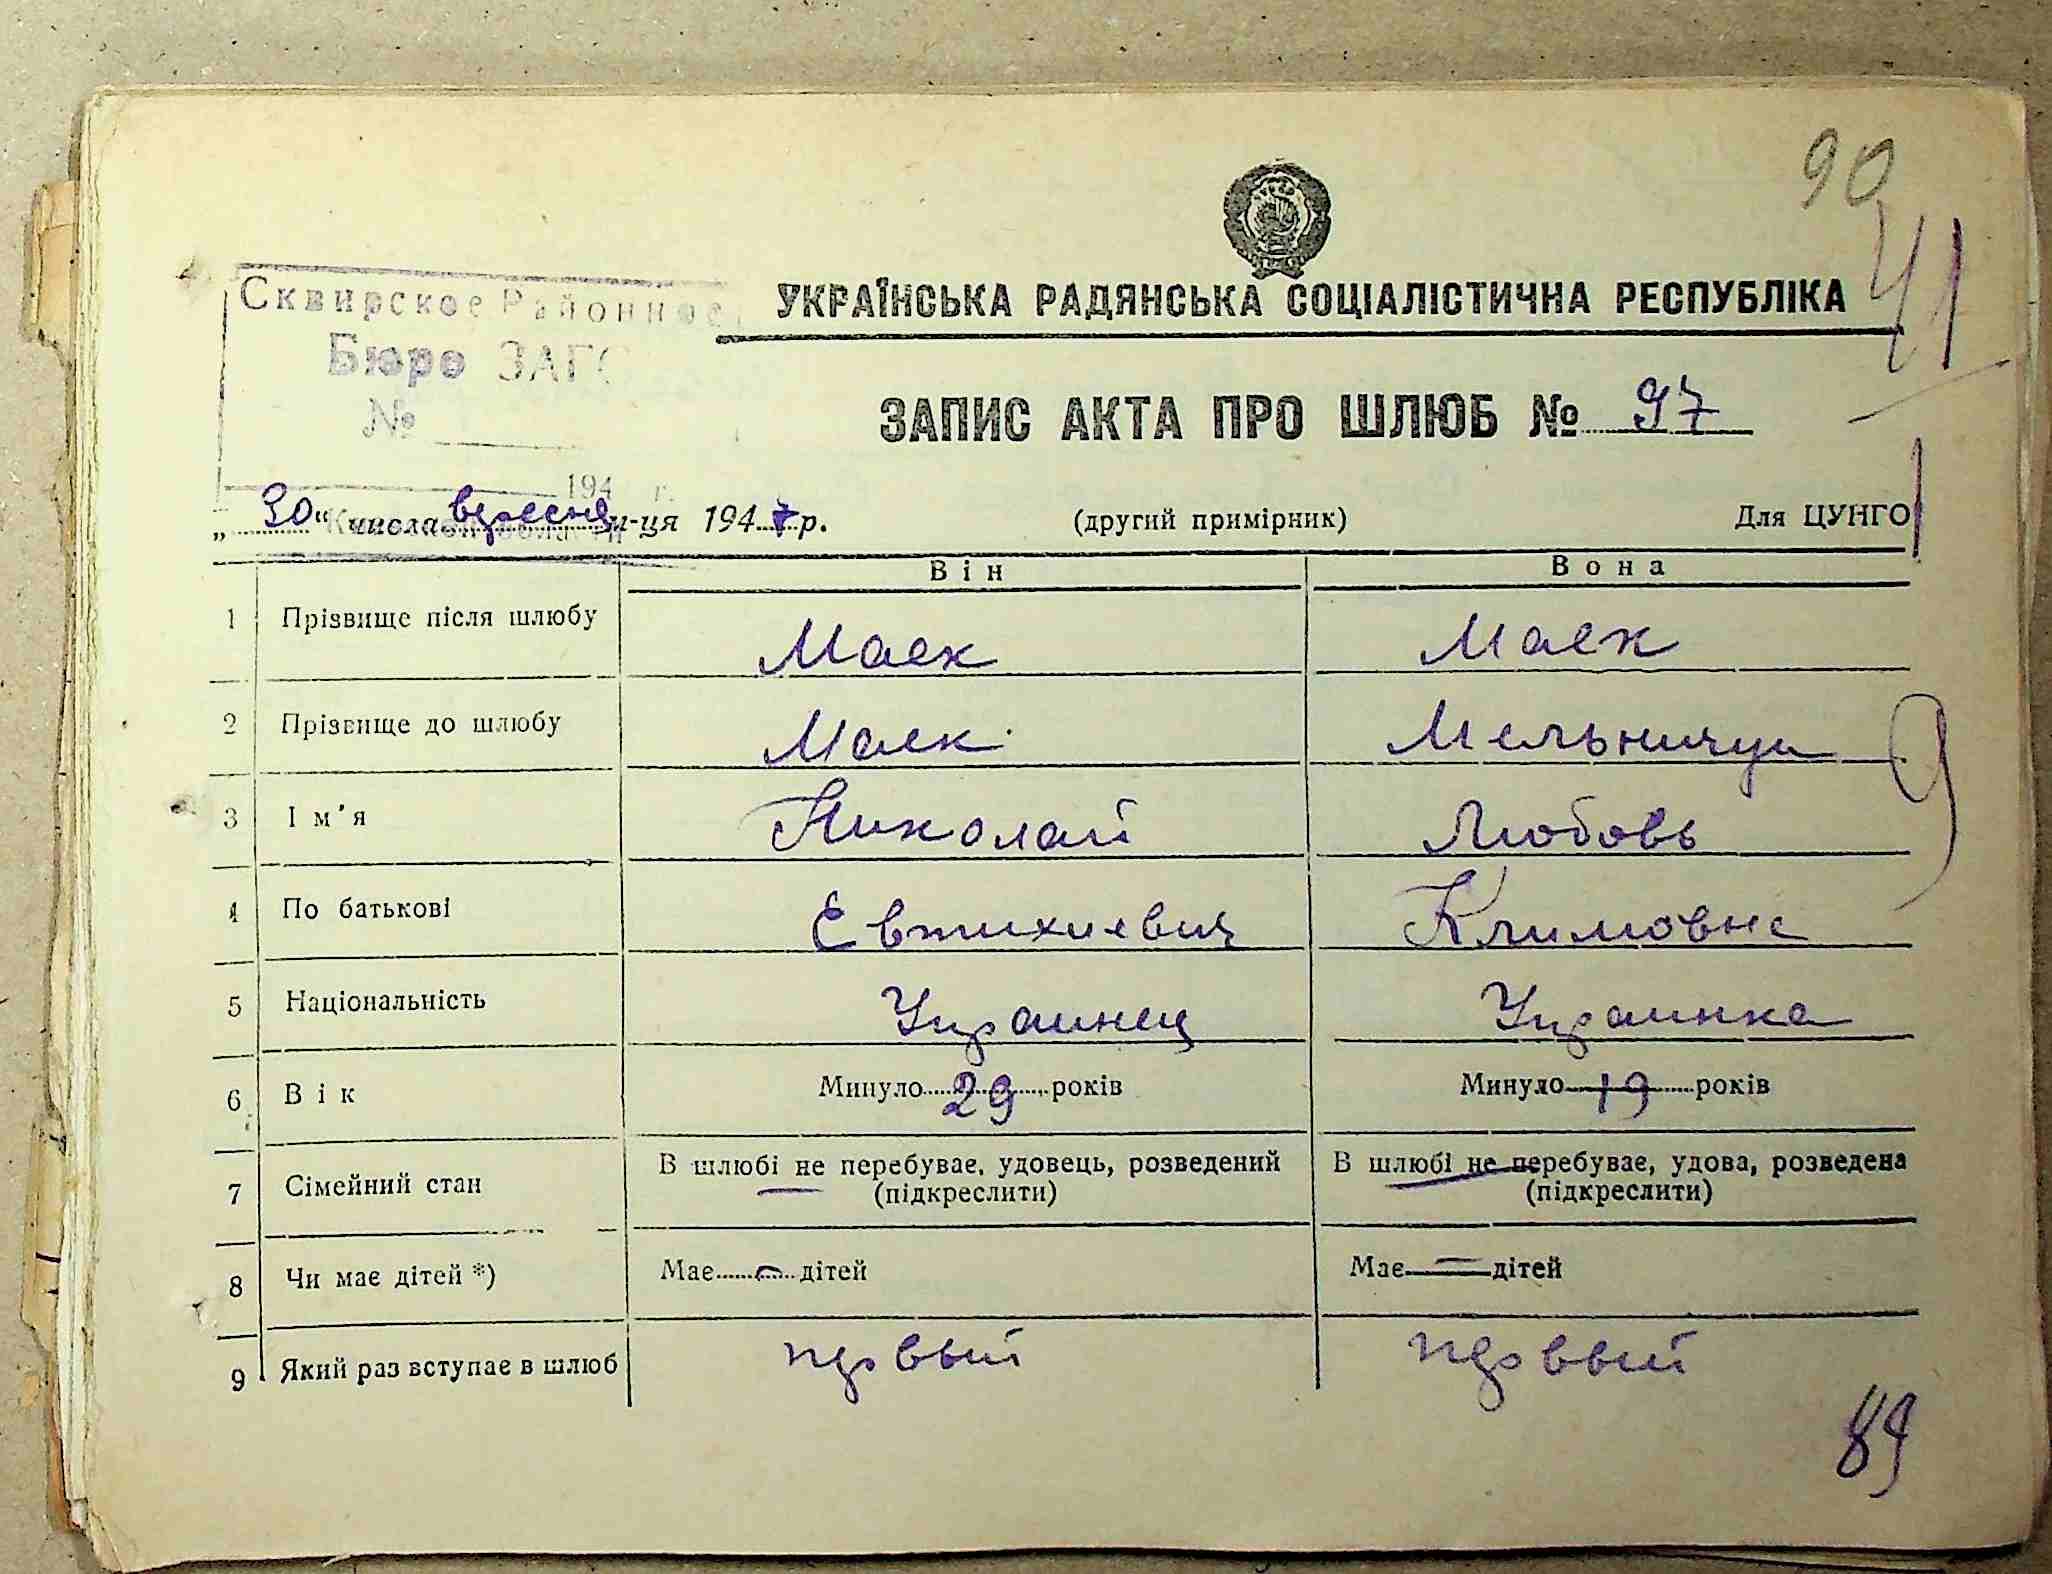 90
41
Сквирское Районное
Бюро ЗАГС
№
194 г.
УКРАЇНСЬКА РАДЯНСЬКА СОЦІАЛІСТИЧНА РЕСПУБЛІКА
ЗАПИС АКТА ПРО ШЛЮБ № 97
„30“ числа вересня м-ця 1947 р. (другий примірник) Для ЦУНГО
Він Вона
1 Прізвище після шлюбу Маек Маек
2 Прізвище до шлюбу Маек Мельничук
3 Ім'я Николай Любовь
4 По батькові Евтихиевич Климовна
5 Національність Украинец Украинка
6 Вік Минуло 29 років Минуло 19 років
7 Сімейний стан В шлюбі не перебуває, удовець, розведений (підкреслити) В шлюбі не перебуває, удова, розведена (підкреслити)
8 Чи має дітей *) Має — дітей Має — дітей
9 Який раз вступає в шлюб первый первый
89